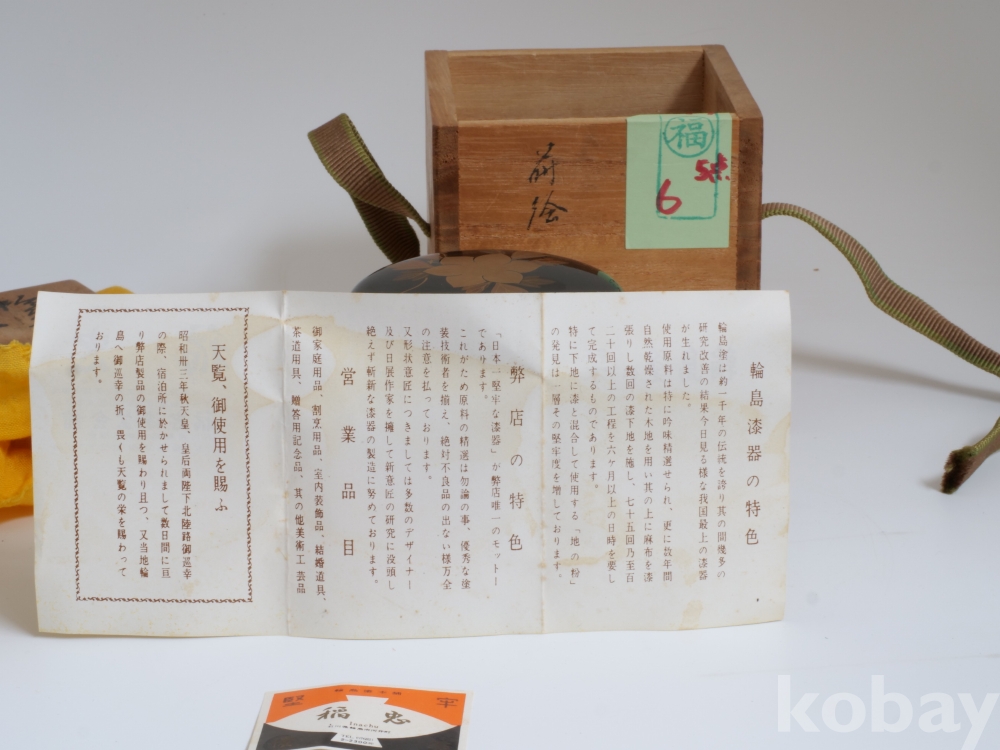 蒔絵
福
5点
6
輪島漆器の特色
輪島塗は約一千年の伝統を誇り其の間幾多の
研究改善の結果今日見る様な我国最上の漆器
が生れました。
使用原料は特に吟味精選せられ、更に数年間
自然乾燥された木地を用い其の上に麻布を漆
張りし数回の漆下地を施し、七十五回乃至百
二十回以上の工程を六ケ月以上の日時を要し
て完成するものであります。
特に下地に漆と混合して使用する「地の粉」
の発見は一層その堅牢度を増しております。
弊店の特色
「日本一堅牢な漆器」が弊店唯一のモットー
であります。
これがため原料の精選は勿論の事、優秀な塗
装技術者を揃え、絶対不良品の出ない様万全
の注意を払っております。
又形状意匠につきましては多数のデザイナー
及び日展作家を擁して新意匠の研究に没頭し
絶えず斬新な漆器の製造に努めております。
営業品目
御家庭用品、割烹用品、室内装飾品、結婚道具、
茶道用具、贈答用記念品、其の他美術工芸品
天覧、御使用を賜ふ
昭和卅三年秋天皇、皇后両陛下北陸路御巡幸
の際、宿泊所に於かせられまして数日間に亘
り弊店製品の御使用を賜わり且つ、又当地輪
島へ御巡幸の折、畏くも天覧の栄を賜わって
おります。
堅
牢
稲忠
Inachu
kobay